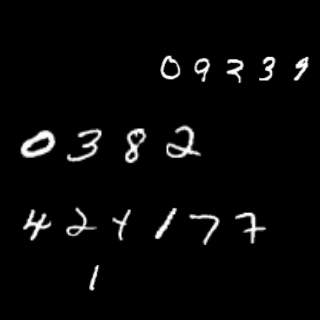 09239
0382
424177
1